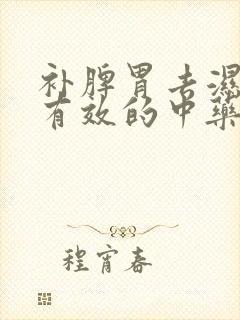 补脾胃去湿
有效的中药
程宵春